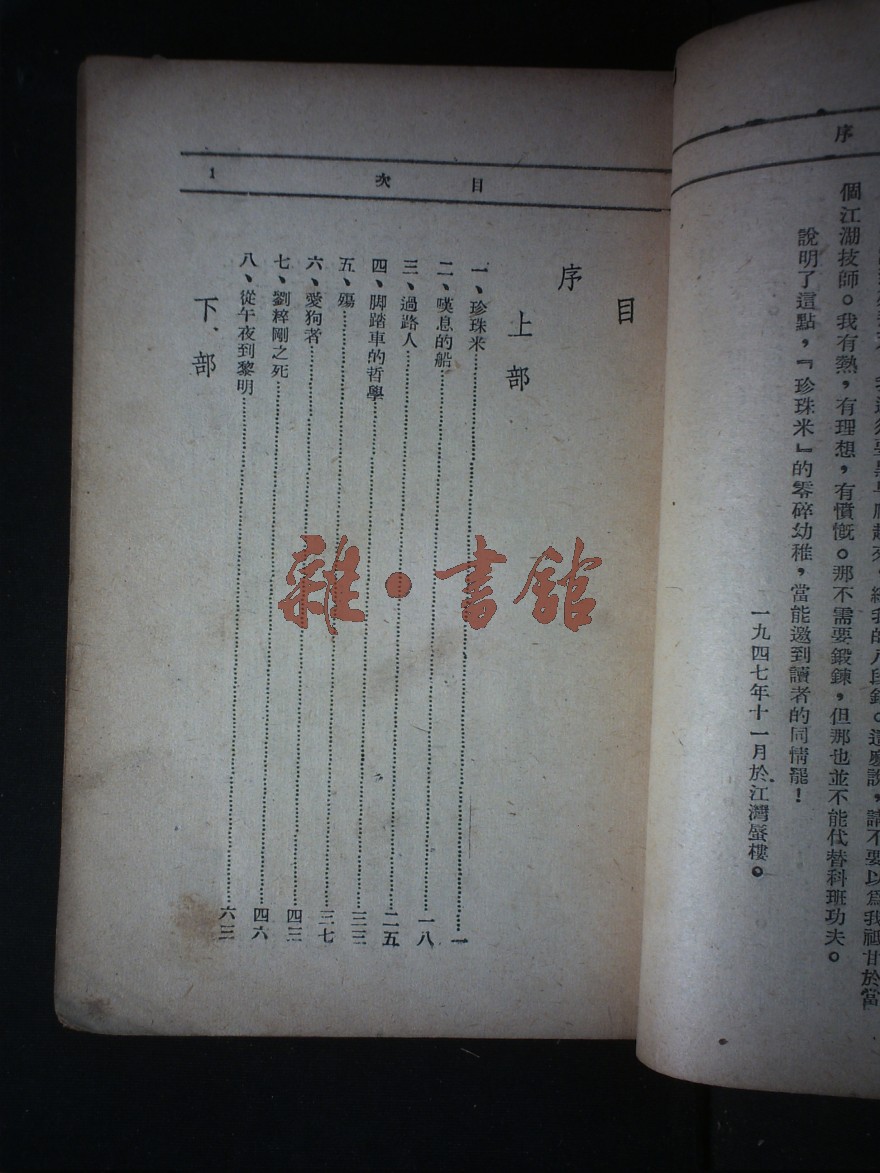 序
說,請不要以爲我祗甘於當
個江湖技師。我有熱,有理想,有憤慨。那不需要鍛鍊,但那也並不能代替科班功夫。
說明了這點,『珍珠米』的零碎幼稚,當能邀到讀者的同情罷!
一九四七年十一月於江灣蜃樓。
目次 1
目
序
上部
一、珍珠米……一
二、嘆息的船……一八
三、過路人……二五
四、脚踏車的哲學……三三
五、殤……三七
六、愛狗者……四三
七、劉粹剛之死……四六
八、從午夜到黎明……六三
下部
雜·書館